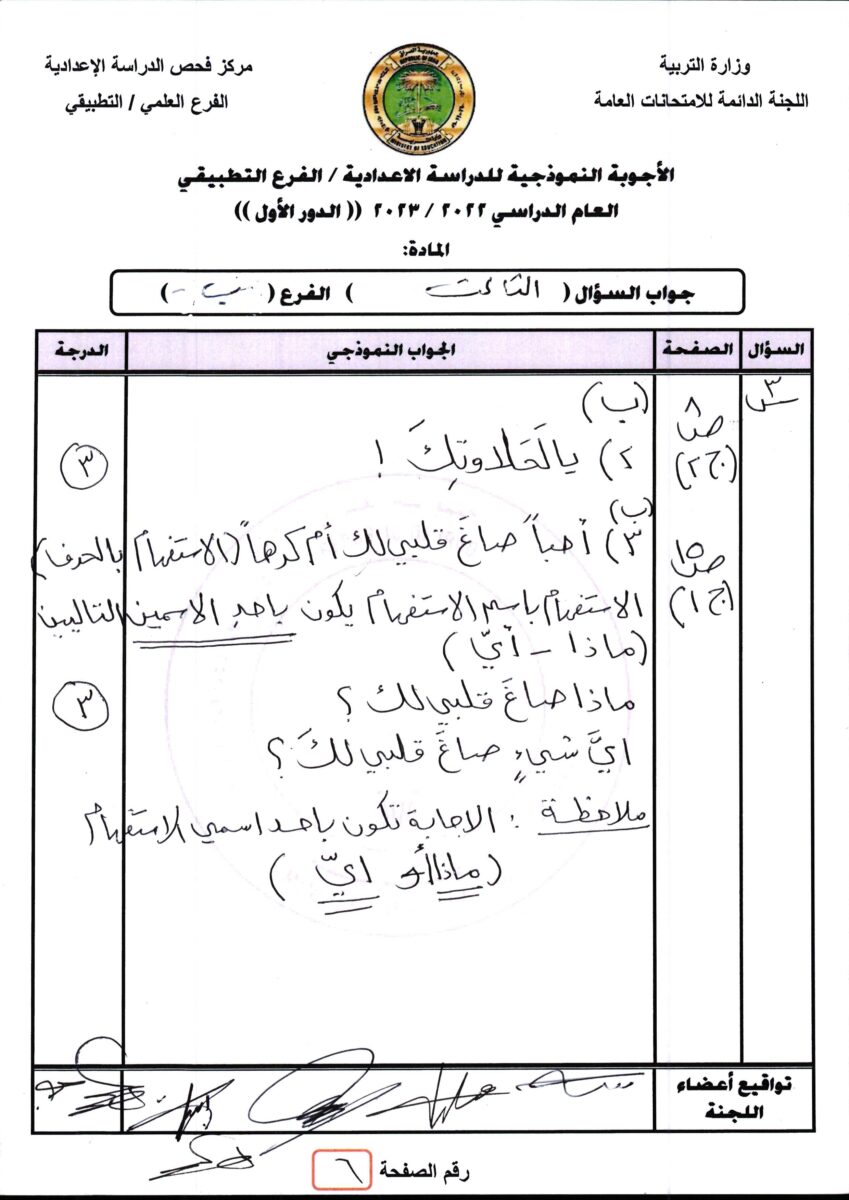 وزارة التربية
اللجنة الدائمة للامتحانات العامة
مركز فحص الدراسة الإعدادية
الفرع العلمي / التطبيقي
جمهورية العراق
REPUBLIC OF IRAQ
MINISTRY OF EDUCATION
الأجوبة النموذجية للدراسة الاعدادية / الفرع التطبيقي
العام الدراسي ٢٠٢٢ / ٢٠٢٣ (( الدور الأول ))
المادة:
جواب السؤال ( الثالث ) الفرع ( ب )
السؤال الصفحة الجواب النموذجي الدرجة
س٣
ص٨
(ج٢)
(ب)
٢) يالَحَلاوتِكَ !
٣
ص١٥
(ج١)
(ب)
٣) أحباً صاغَ قلبي لك أم كرهاً (الاستفهام بالحرف)
الاستفهام باسم الاستفهام يكون باحد الاسمين التاليين
(ماذا - أيّ)
ماذا صاغَ قلبي لك ؟
٣
ايَّ شيءٍ صاغَ قلبي لكَ ؟
ملاحظة : الاجابة تكون باحد اسمي الاستفهام
(ماذا أو ايّ)
تواقيع أعضاء
اللجنة
رقم الصفحة ٦